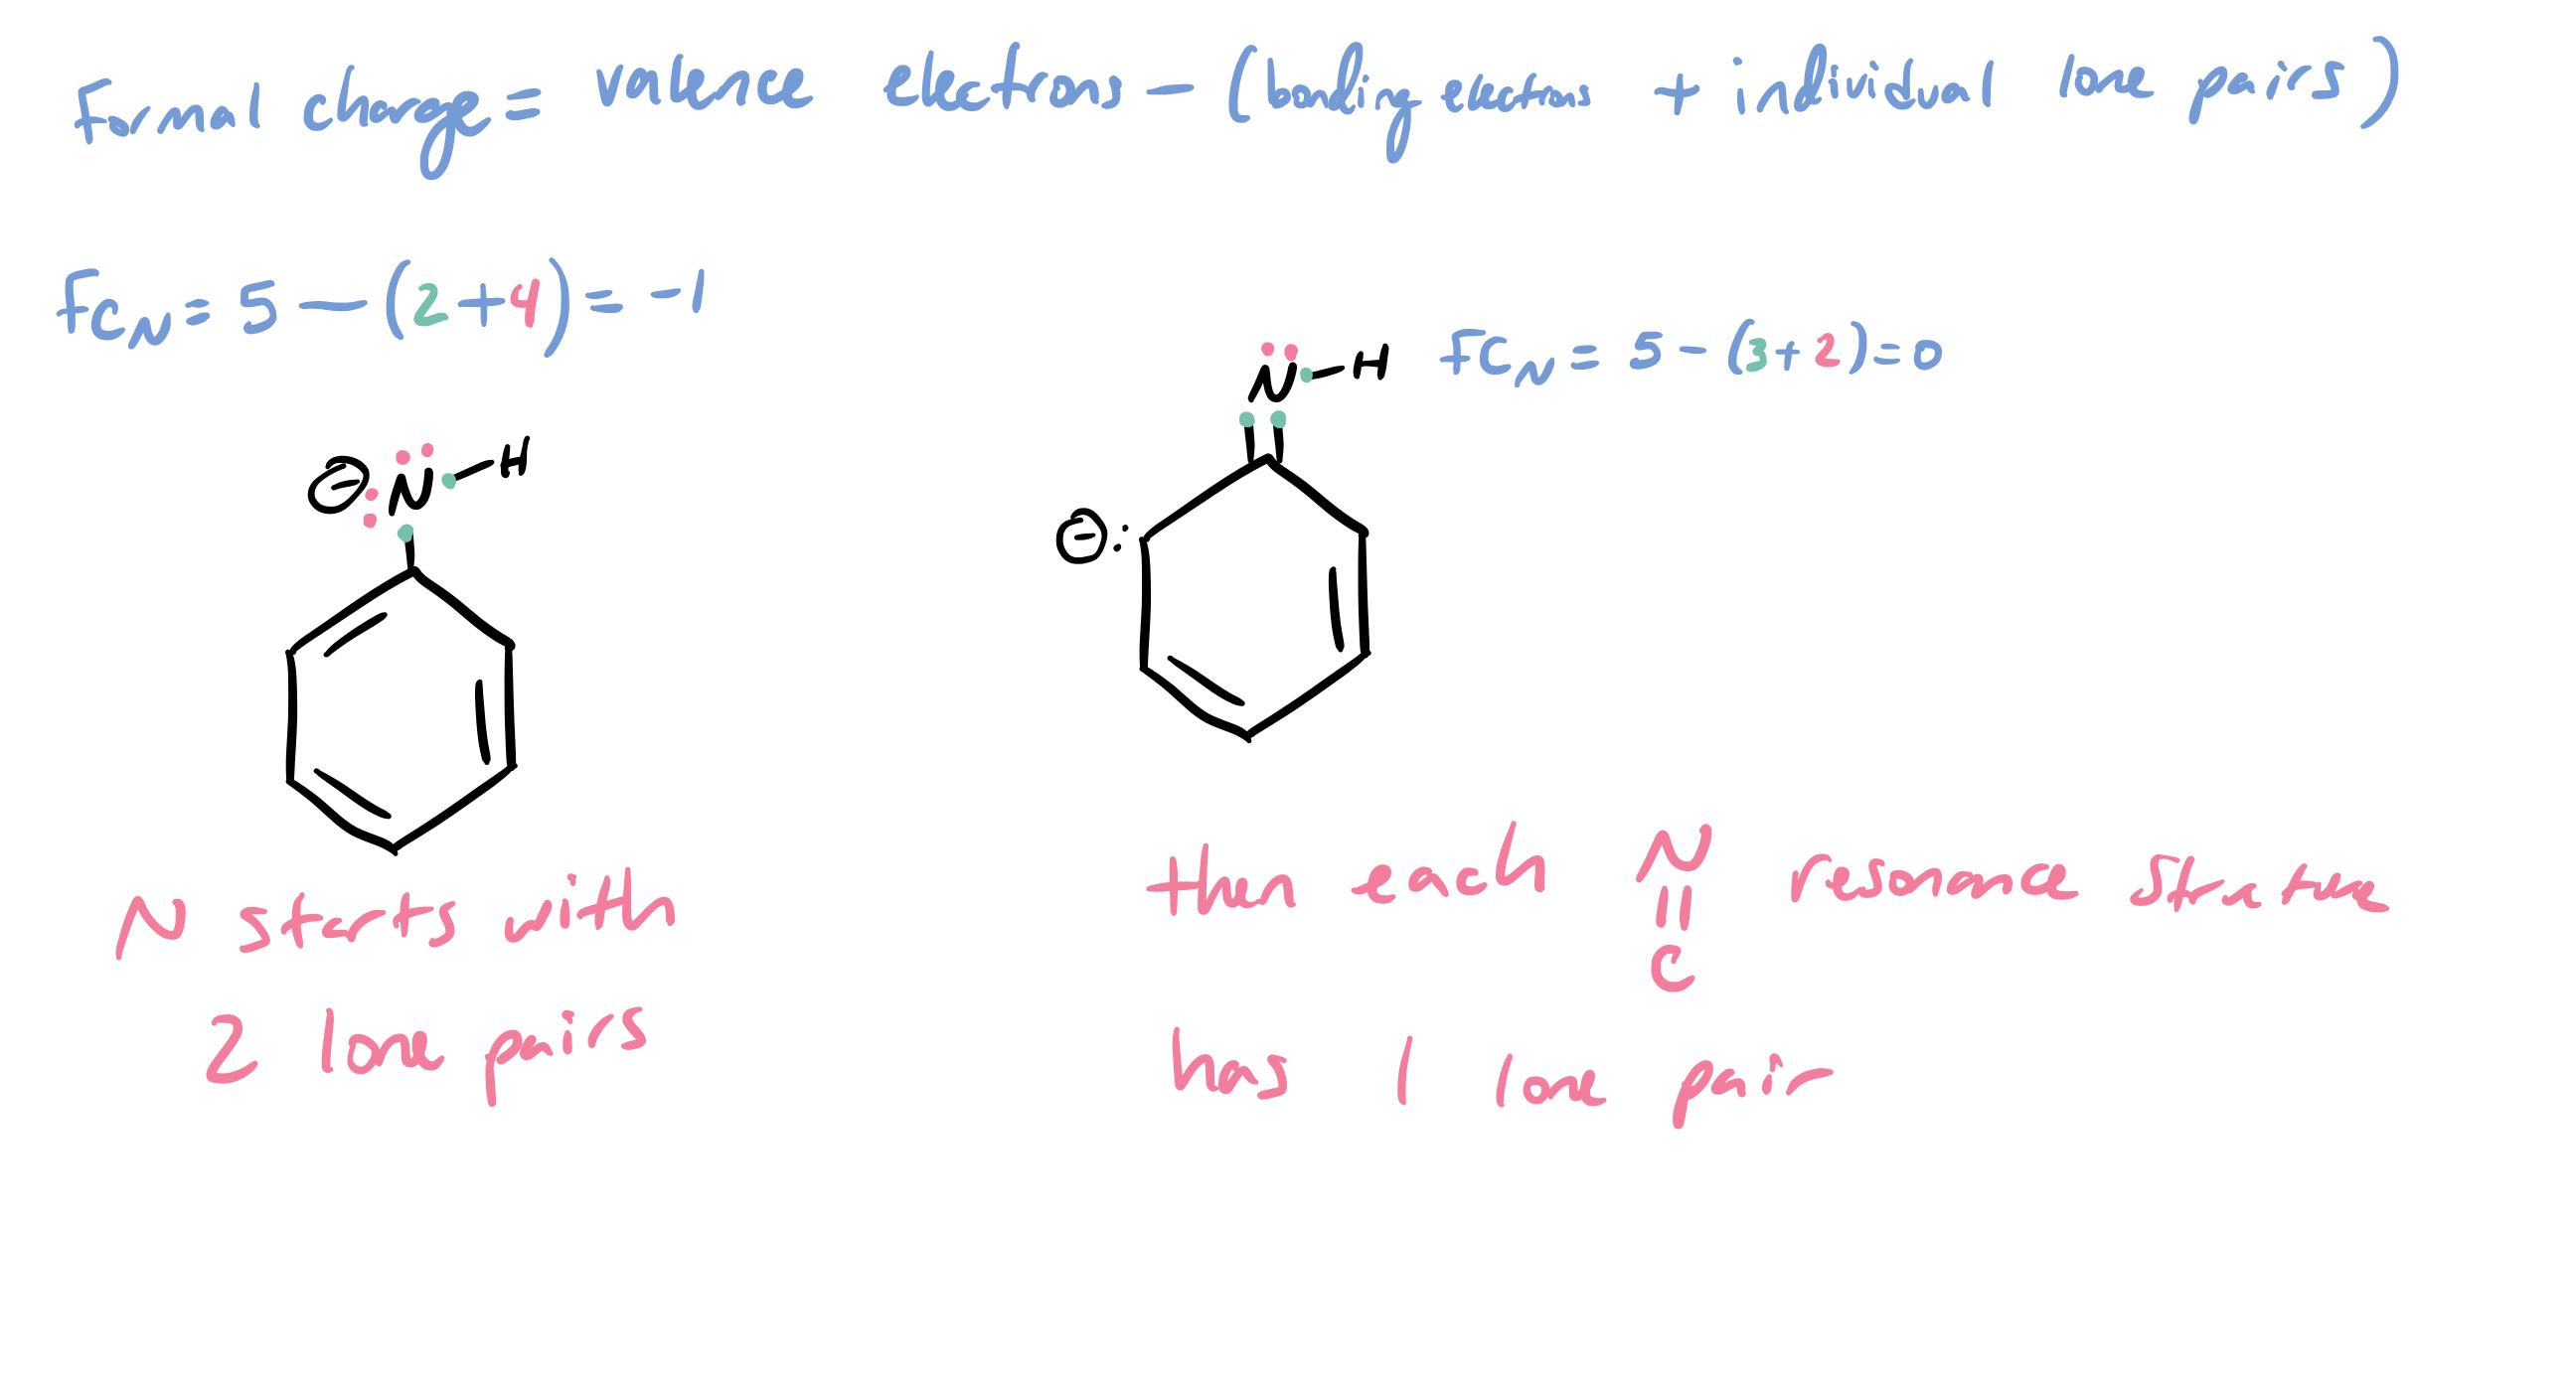 Formal charge = valence electrons — (bonding electrons + individual lone pairs)
FC_N = 5 — (2+4) = -1
N-H FC_N = 5 - (3+2) = 0
⊖ : N-H
⊖ :
then each N resonance structure
||
C
N starts with
2 lone pairs
has 1 lone pair